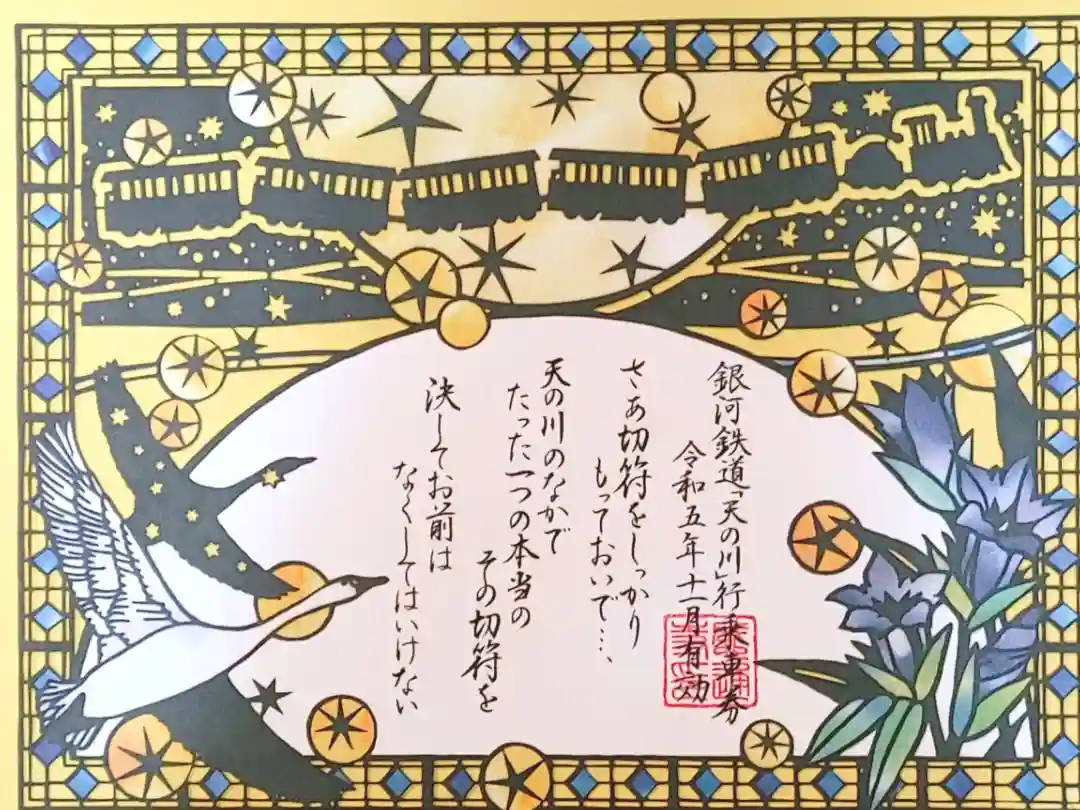 銀河鉄道「天の川」行乗車券
令和五年十一月有効
さあ切符をしっかり
もっておいで…、
天の川のなかで
たった一つの本当の
その切符を
決してお前は
なくしてはいけない